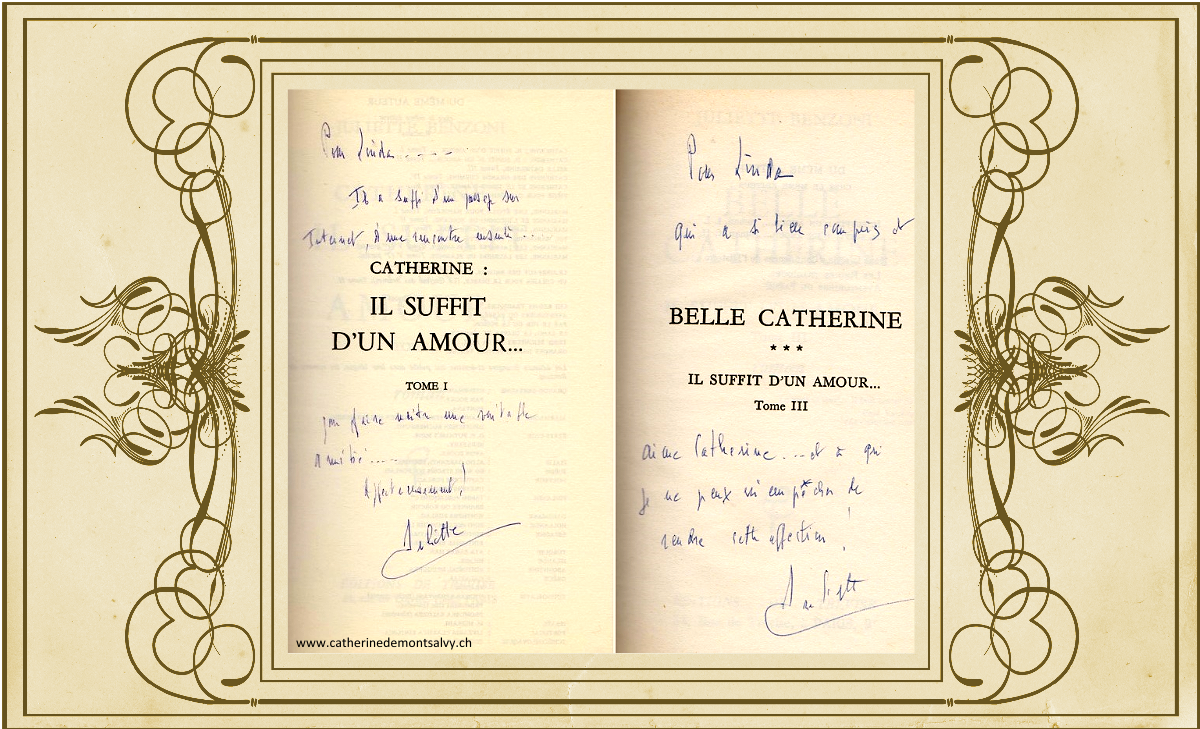 Pour Linda.....
Il a suffi d'un passage sur
Internet, d'une rencontre ensuite...
CATHERINE :
IL SUFFIT
D'UN AMOUR...
TOME I
pour faire naître une véritable
amitié.....
Affectueusement!
Juliette
www.catherinedemontsalvy.ch
Pour Linda
qui a si bien compris et
BELLE CATHERINE
* * *
IL SUFFIT D'UN AMOUR...
Tome III
aimé Catherine...et à qui
je ne peux m'empêcher de
rendre cette affection!
Juliette